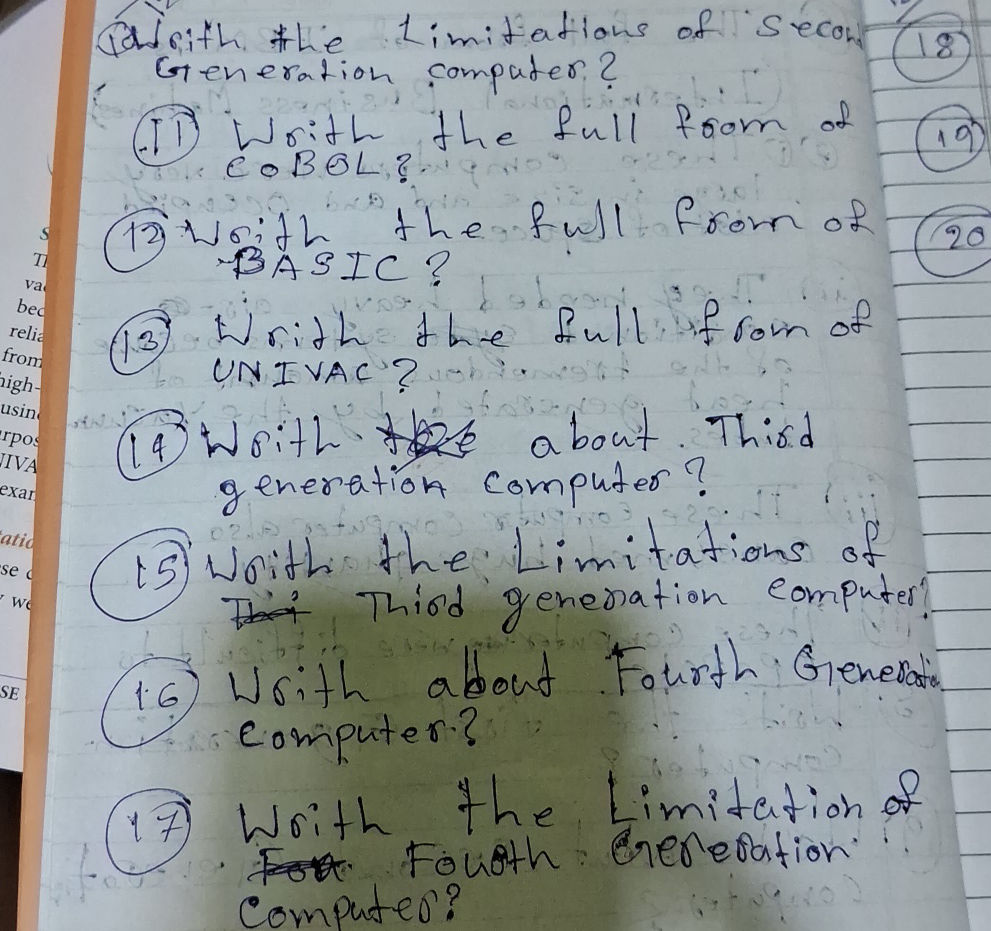 10 Writh the Limitations of Secon
Generation computer?
11 Writh the full from of
COBOL?
12 Writh the full from of
BASIC?
13 Writh the full from of
UNIVAC?
14 Writh about Third
generation computer?
15 Writh the Limitations of
Third generation computer?
16 Writh about Fourth Generatio
computer?
17 Writh the Limitation of
Fourth Generation
Computer?
18
19
20
S
T
va
bec
relia
from
high-
usin
rpos
IVA
exar
atio
se
we
SE